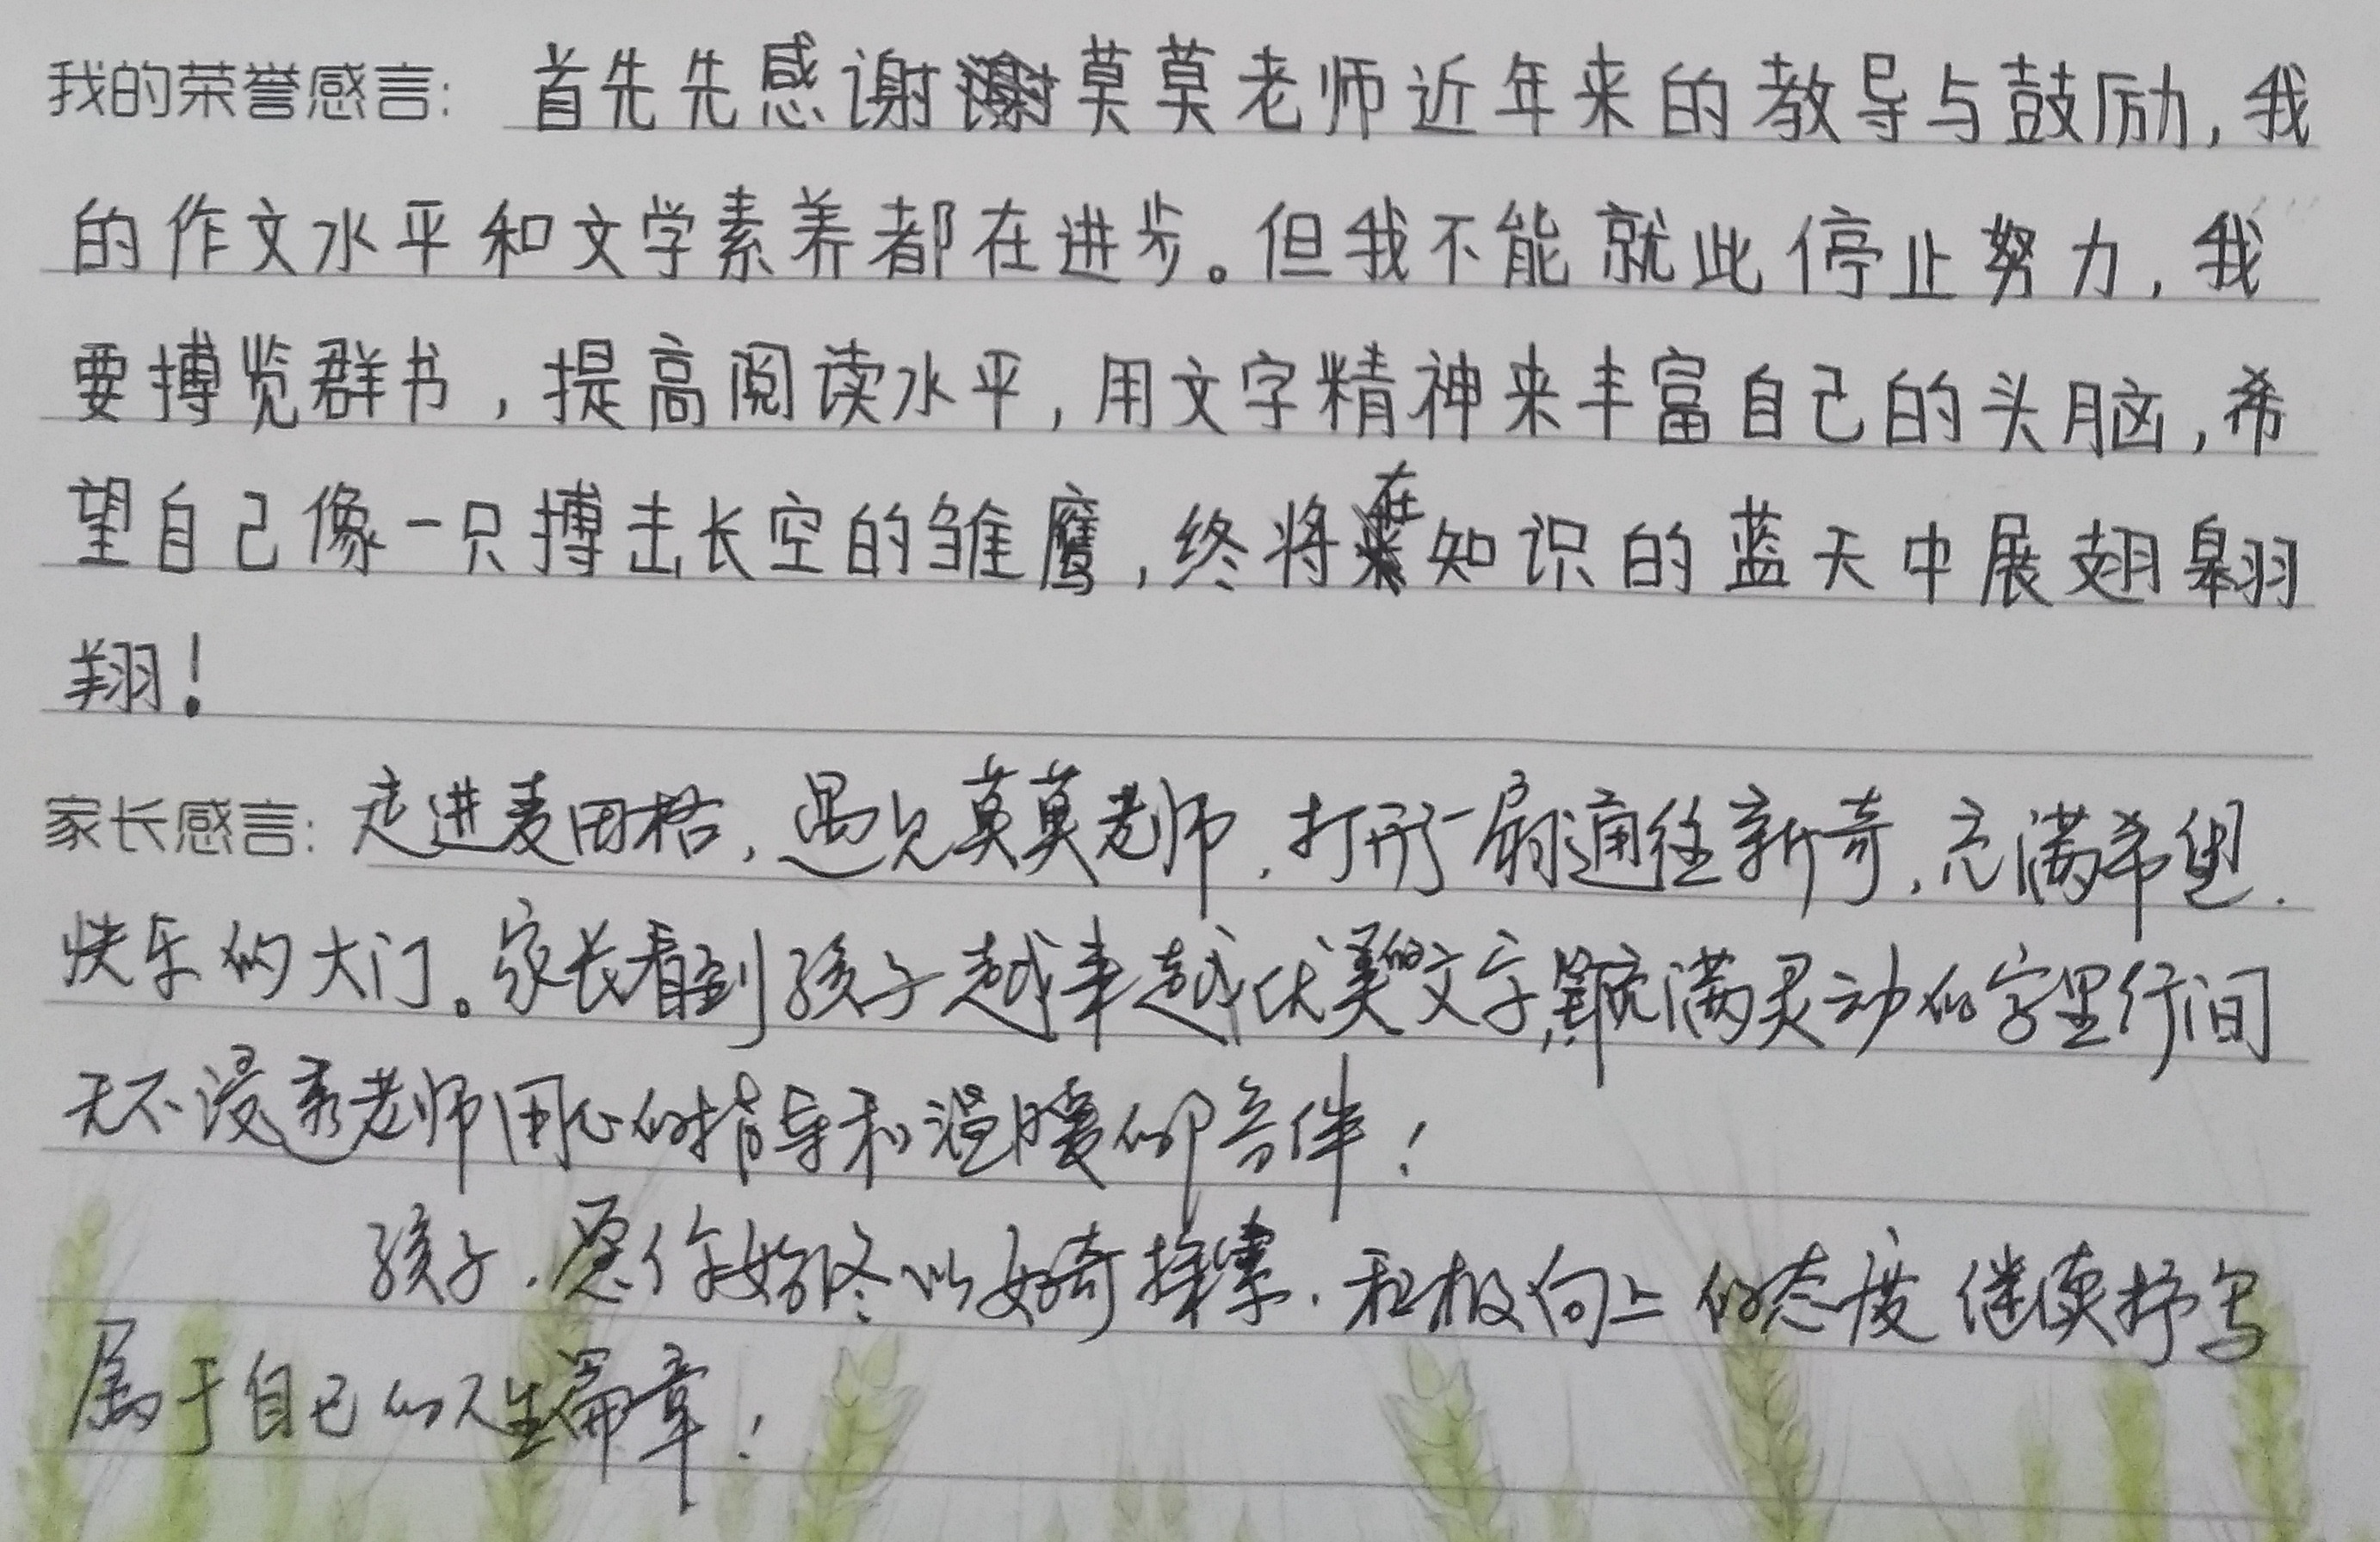 我的荣誉感言：首先先感谢莫莫老师近年来的教导与鼓励，我
的作文水平和文学素养都在进步。但我不能就此停止努力，我
要搏览群书，提高阅读水平，用文字精神来丰富自己的头脑，希
望自己像一只搏击长空的雏鹰，终将在知识的蓝天中展翅翱
翔！
家长感言：走进麦田格，遇见莫莫老师，打开了一扇通往新奇，充满希望、
快乐的大门。家长看到孩子越来越优美的文字，充满灵动的字里行间
无不浸透老师用心的指导和温暖的陪伴！
孩子，愿你始终以好奇探索、积极向上的态度继续抒写
属于自己的人生篇章！